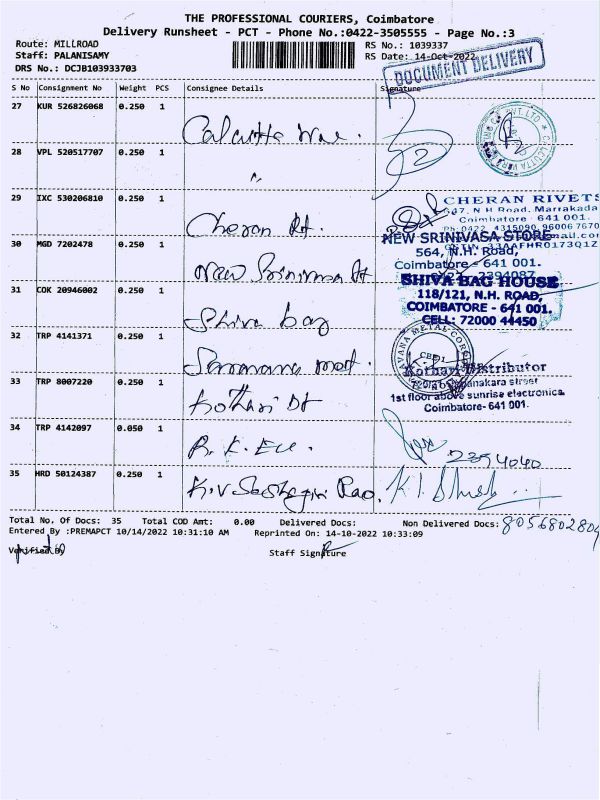 THE PROFESSIONAL COURIERS, Coimbatore
Delivery Runsheet - PCT - Phone No.:0422-3505555 - Page No.:3
Route: MILLROAD RS No.: 1039337
Staff: PALANISAMY RS Date: 14-Oct-2022
DRS No.: DCJB103933703
DOCUMENT DELIVERY
S No Consignment No Weight PCS Consignee Details Signature
27 KUR 526826068 0.250 1 Calcutta
28 VPL 520517707 0.250 1 "
29 IXC 530206810 0.250 1 Cheran Rt.
CHERAN RIVETS
647, N H Road, Marrakada
Coimbatore - 641 001.
Ph: 0422 4315090, 96006 7670
30 MGD 7202478 0.250 1 New Srinivasa St
NEW SRINIVASA STORE
564, N.H. Road,
Coimbatore - 641 001.
31 COK 20946002 0.250 1 Shiva bag
SHIVA BAG HOUSE
118/121, N.H. ROAD,
COIMBATORE - 641 001.
CELL: 72000 44450
32 TRP 4141371 0.250 1
33 TRP 8007220 0.250 1 Kothari Dt
Kothari Distributor
1st floor above sunrise electronics
Coimbatore- 641 001.
34 TRP 4142097 0.050 1 R. K. Ele. 2394040
35 HRD 50124387 0.250 1 K.V Seshagiri Rao.
Total No. Of Docs: 35 Total COD Amt: 0.00 Delivered Docs: Non Delivered Docs: 8056802804
Entered By :PREMAPCT 10/14/2022 10:31:10 AM Reprinted On: 14-10-2022 10:33:09
Verified By Staff Signature